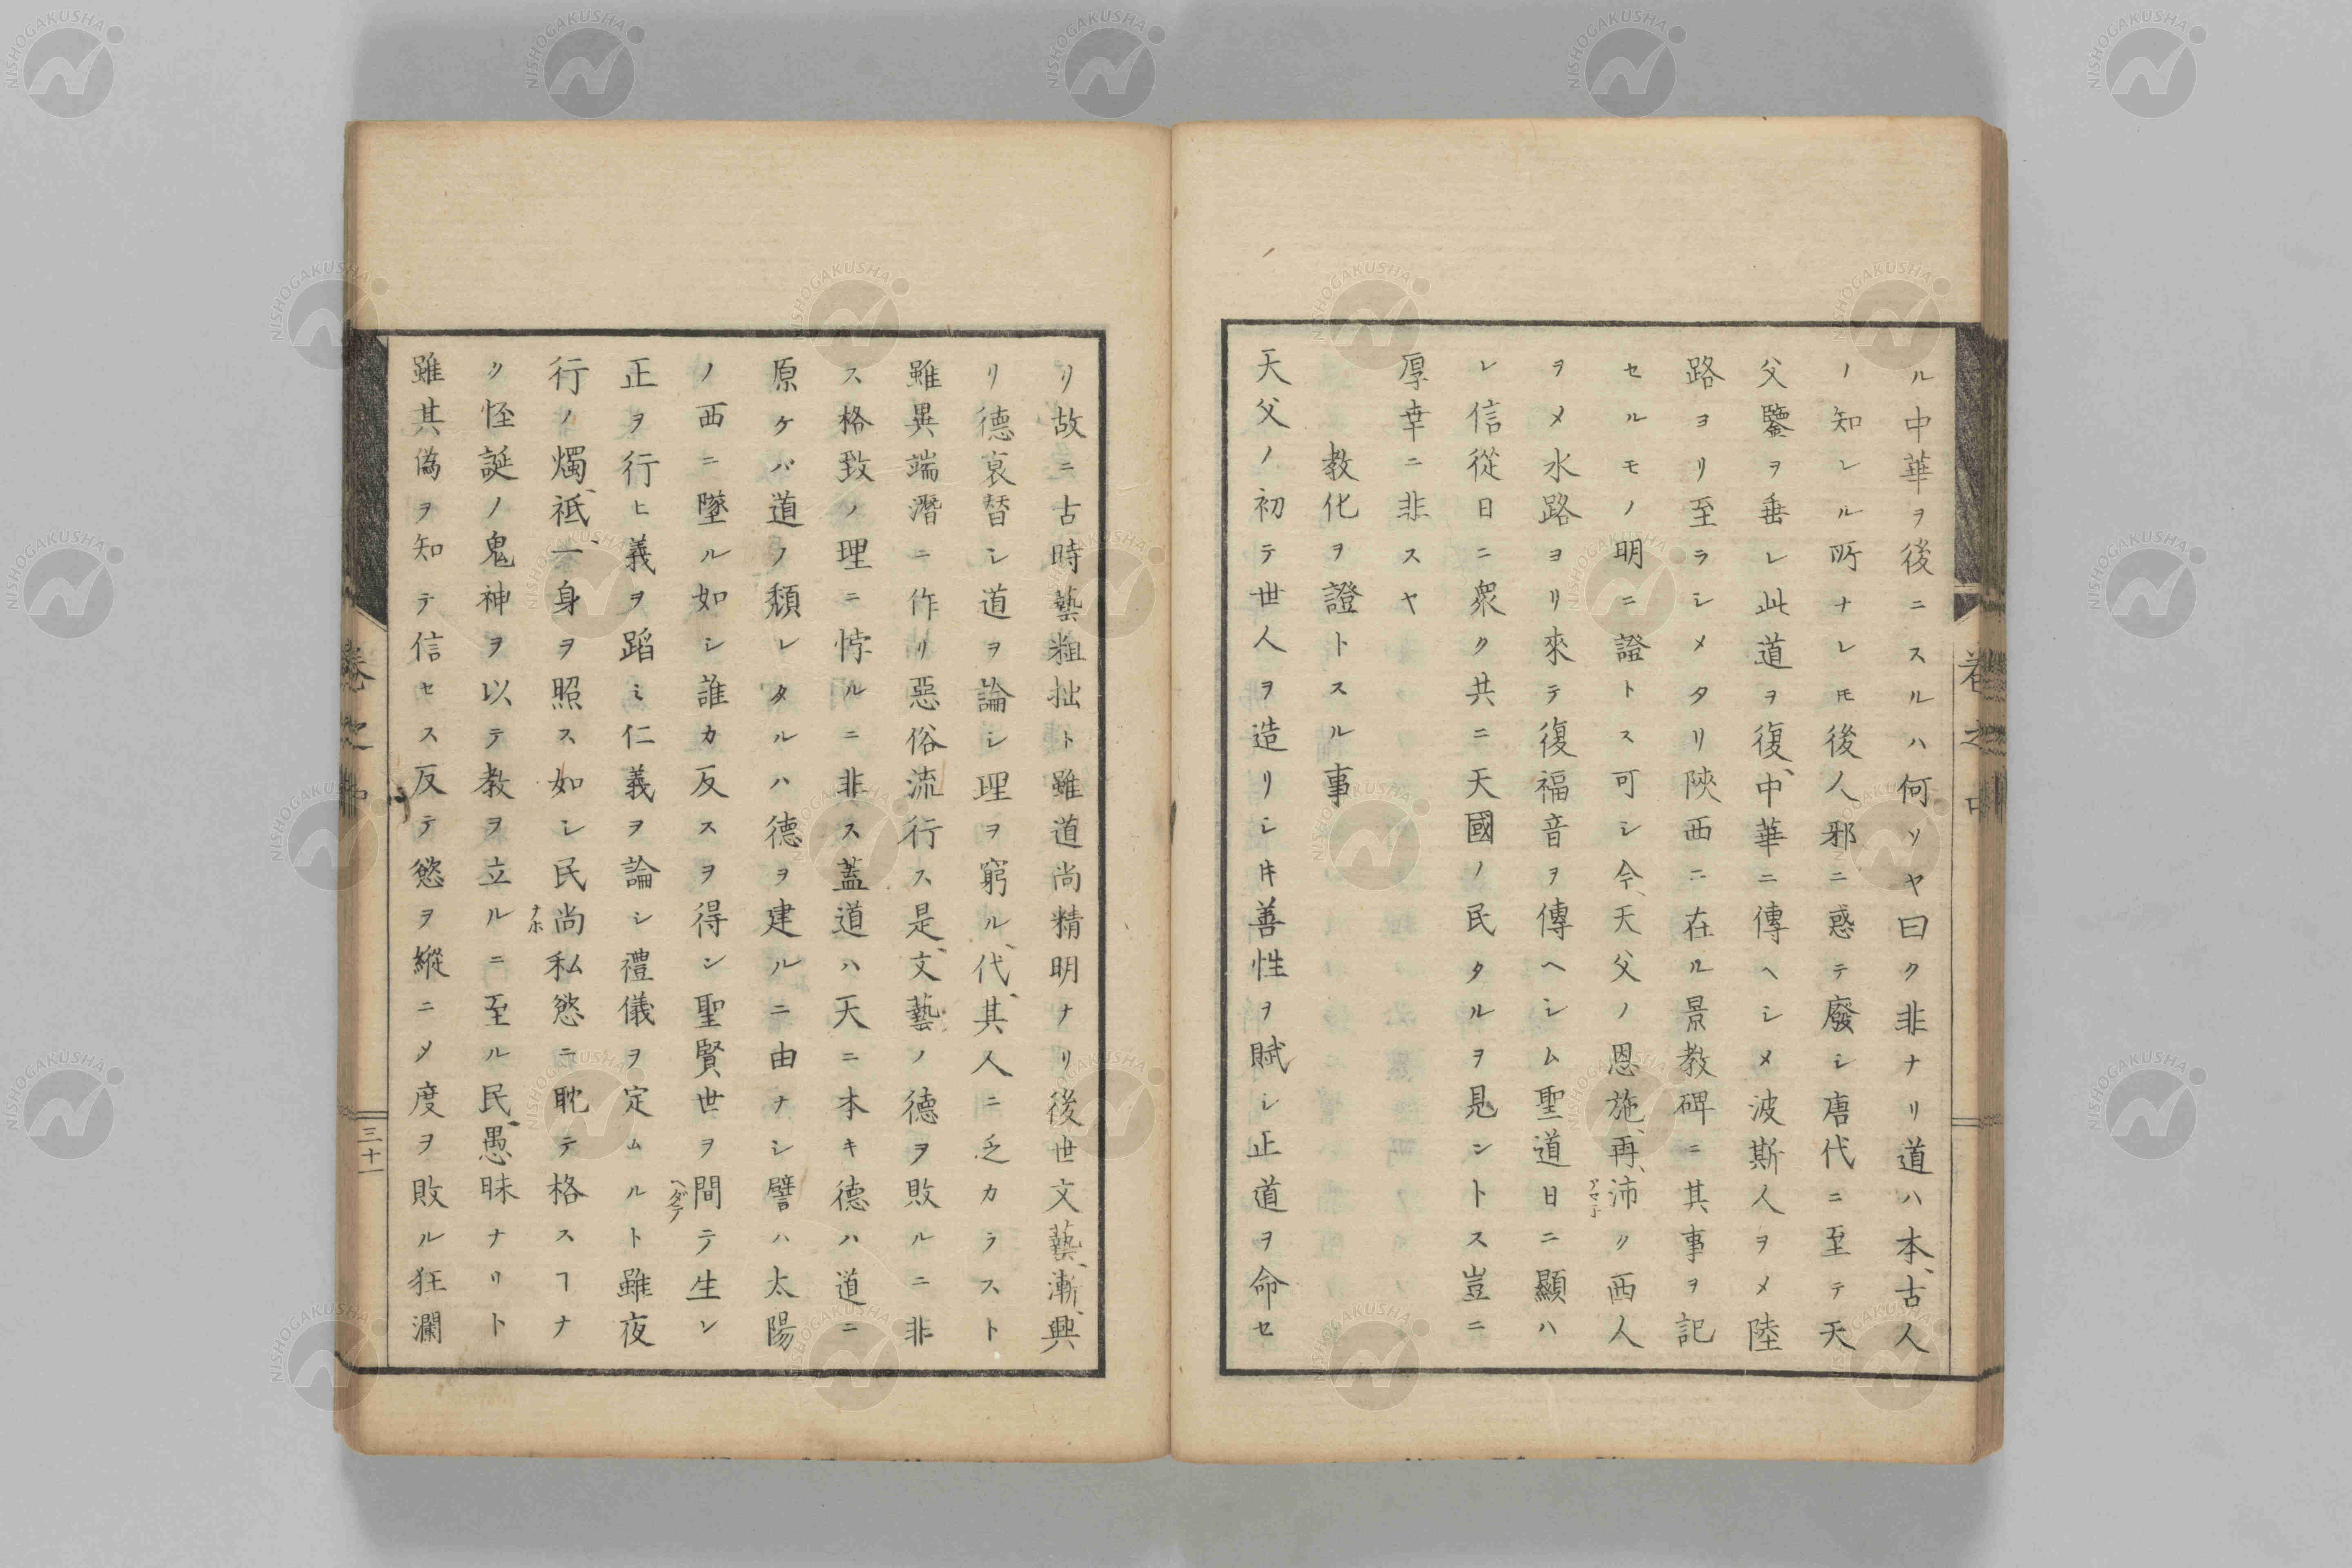 ル中華ヲ後ニスルハ何ソヤ曰ク非ナリ道ハ本、古人
ノ知レル所ナレ𪜈後人邪ニ惑テ廢シ唐代ニ至テ天
父鑒ヲ垂レ此道ヲ復、中華ニ傳ヘシメ波斯人ヲメ陸
路ヨリ至ラシメタリ陝西ニ在ル景教碑ニ其事ヲ記
セルモノ明ニ證トス可シ今、天父ノ恩施、再、沛ク西人
アマ子
ヲメ水路ヨリ來テ復福音ヲ傳ヘシム聖道日ニ顯ハ
レ信從日ニ衆ク共ニ天國ノ民タルヲ見ントス豈ニ
厚幸ニ非スヤ
教化ヲ證トスル事
天父ノ初テ世人ヲ造リシ𪜈善性ヲ賦シ正道ヲ命セ
卷之中
リ故ニ古時藝粗拙ト雖道尚精明ナリ後世文藝、漸、興
リ德衰替シ道ヲ論シ理ヲ窮ル、代、其人ニ乏カラスト
雖異端潛ニ作リ惡俗流行ス是、文、藝ノ德ヲ敗ルニ非
ス格致ノ理ニ悖ルニ非ス蓋道ハ天ニ本キ德ハ道ニ
原ケバ道ノ頽レタルハ德ヲ建ルニ由ナシ譬ハ太陽
ノ西ニ墜ル如シ誰カ反スヲ得ン聖賢世ヲ間テ生レ
ヘダテ
正ヲ行ヒ義ヲ蹈ミ仁義ヲ論シ禮儀ヲ定ムルト雖夜
行ノ燭、祗、一身ヲ照ス如シ民尚私慾ニ耽テ格スヿナ
ナホ
ク怪誕ノ鬼神ヲ以テ教ヲ立ルニ至ル民、愚、昧ナリト
雖其偽ヲ知テ信セス反テ慾ヲ縱ニメ度ヲ敗ル狂瀾
卷之中
三十